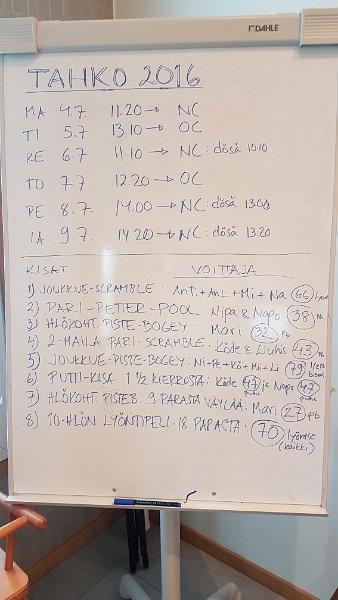 DAHLE
TAHKO 2016
MA 4.7. 11.20 → NC
TI 5.7. 13.10 → OC
KE 6.7. 11.10 → NC: dösä 10.10
TO 7.7 12.20 → OC
PE 8.7. 14.00 → NC: dösä 13.00
LA 9.7. 14.20 → NC: dösä 13.20
KISAT VOITTAJA
1) JOUKKUE-SCRAMBLE: Ant.+Anl+Mi+Na 66 lyön
2) PARI-PETTER-POOL: Nipa & Nopo 38 pb
3) HLÖKOHT. PISTE-BOGEY: Mari 32 pb
4) 2-MAILA PARI-SCRAMBLE: Köde & Liuhis 43 pb
5) JOUKKUE-PISTE-BOGEY: Ni+Pe+Kö+Mi+Li 79
6) PUTTI-KISA 1 1/2 KIERROSTA: Köde 47 ja Nopo 47 puttia
7) HLÖKOHT. PISTEB. 9 PARASTA VÄYLÄÄ: Mari 27 pb
8) 10-HLÖN LYÖNTIPELI 18 PARASTA: 70 lyöntiä (kaikki)